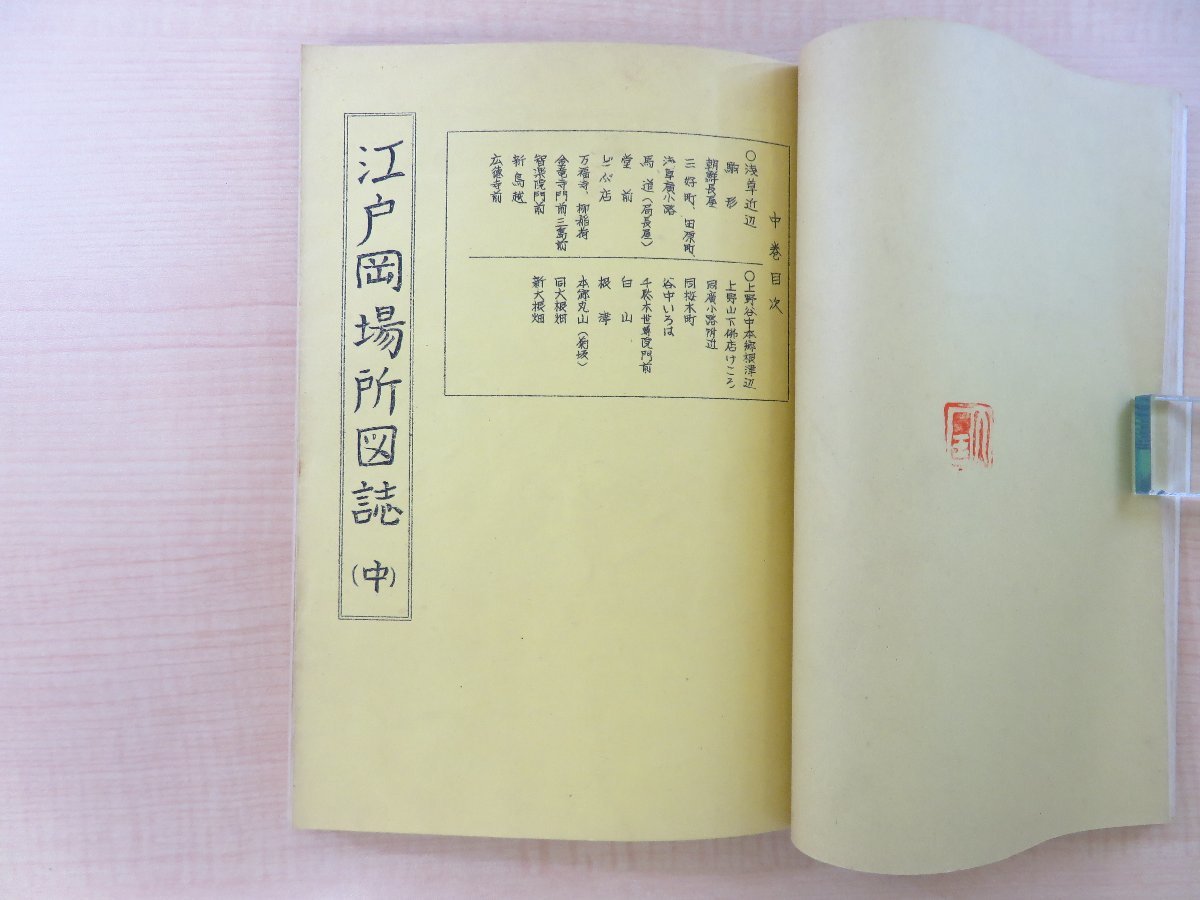 中巻目次
○浅草近辺
駒形
朝鮮長屋
三好町、田原町、
浅草廣小路
馬道(局長屋)
堂前
どぶ店
万福寺、柳稲荷
金竜寺門前三島前
智楽院門前
新鳥越
広徳寺前
○上野谷中本郷根津辺
上野山下佛店けころ
同廣小路附近
同桜木町
谷中いろは
千駄木世尊院門前
白山
根津
本郷丸山(菊坂)
同大根畑
新大根畑
江戸岡場所図誌
(中)